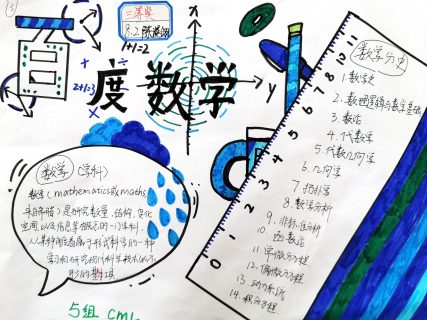 3
三等奖
8.2
1+1=2
2+1=3
度 数学
x
y
数学(学科)
数学(mathematics或maths,
是研究数量、结构、变化、
空间以及信息等概念的一门学科,
从某种角度看属于形式科学的一种
5组 CML
0 1 2 3 4 5 6 7 8 9 10 11
数学分支
1.数学史
2.数理逻辑与数学基础
3.数论
4.代数学
5.代数几何学
6.几何学
7.拓扑学
8.数学分析
9.非标准分析
10.函数论
11.常微分方程
12.偏微分方程
13.动力系统
14.积分方程